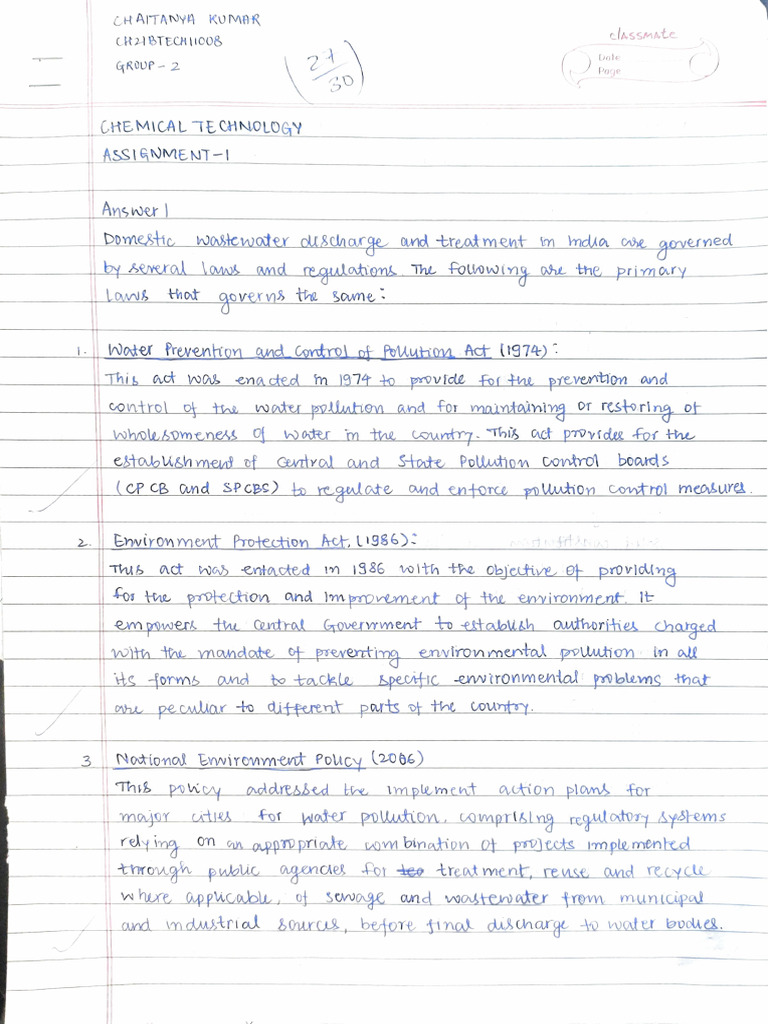 CHAITANYA KUMAR
CH21BTECH11008
GROUP-2
27/30
classmate
Date
Page
CHEMICAL TECHNOLOGY
ASSIGNMENT-1
Answer 1
Domestic wastewater discharge and treatment in India are governed
by several laws and regulations. The following are the primary
laws that governs the same:
1. Water Prevention and Control of Pollution Act (1974):
This act was enacted in 1974 to provide for the prevention and
control of the water pollution and for maintaining or restoring of
wholesomeness of water in the country. This act provides for the
establishment of Central and State Pollution Control boards
(CPCB and SPCBS) to regulate and enforce pollution control measures.
2. Environment Protection Act, (1986):
This act was entacted in 1986 with the objective of providing
for the protection and improvement of the environment. It
empowers the Central Government to establish authorities charged
with the mandate of preventing environmental pollution in all
its forms and to tackle specific environmental problems that
are peculiar to different parts of the country.
3. National Environment Policy (2006)
This policy addressed the implement action plans for
major cities for water pollution, comprising regulatory systems
relying on an appropriate combination of projects implemented
through public agencies for treatment, reuse and recycle
where applicable, of sewage and wastewater from municipal
and industrial sources, before final discharge to water bodies.